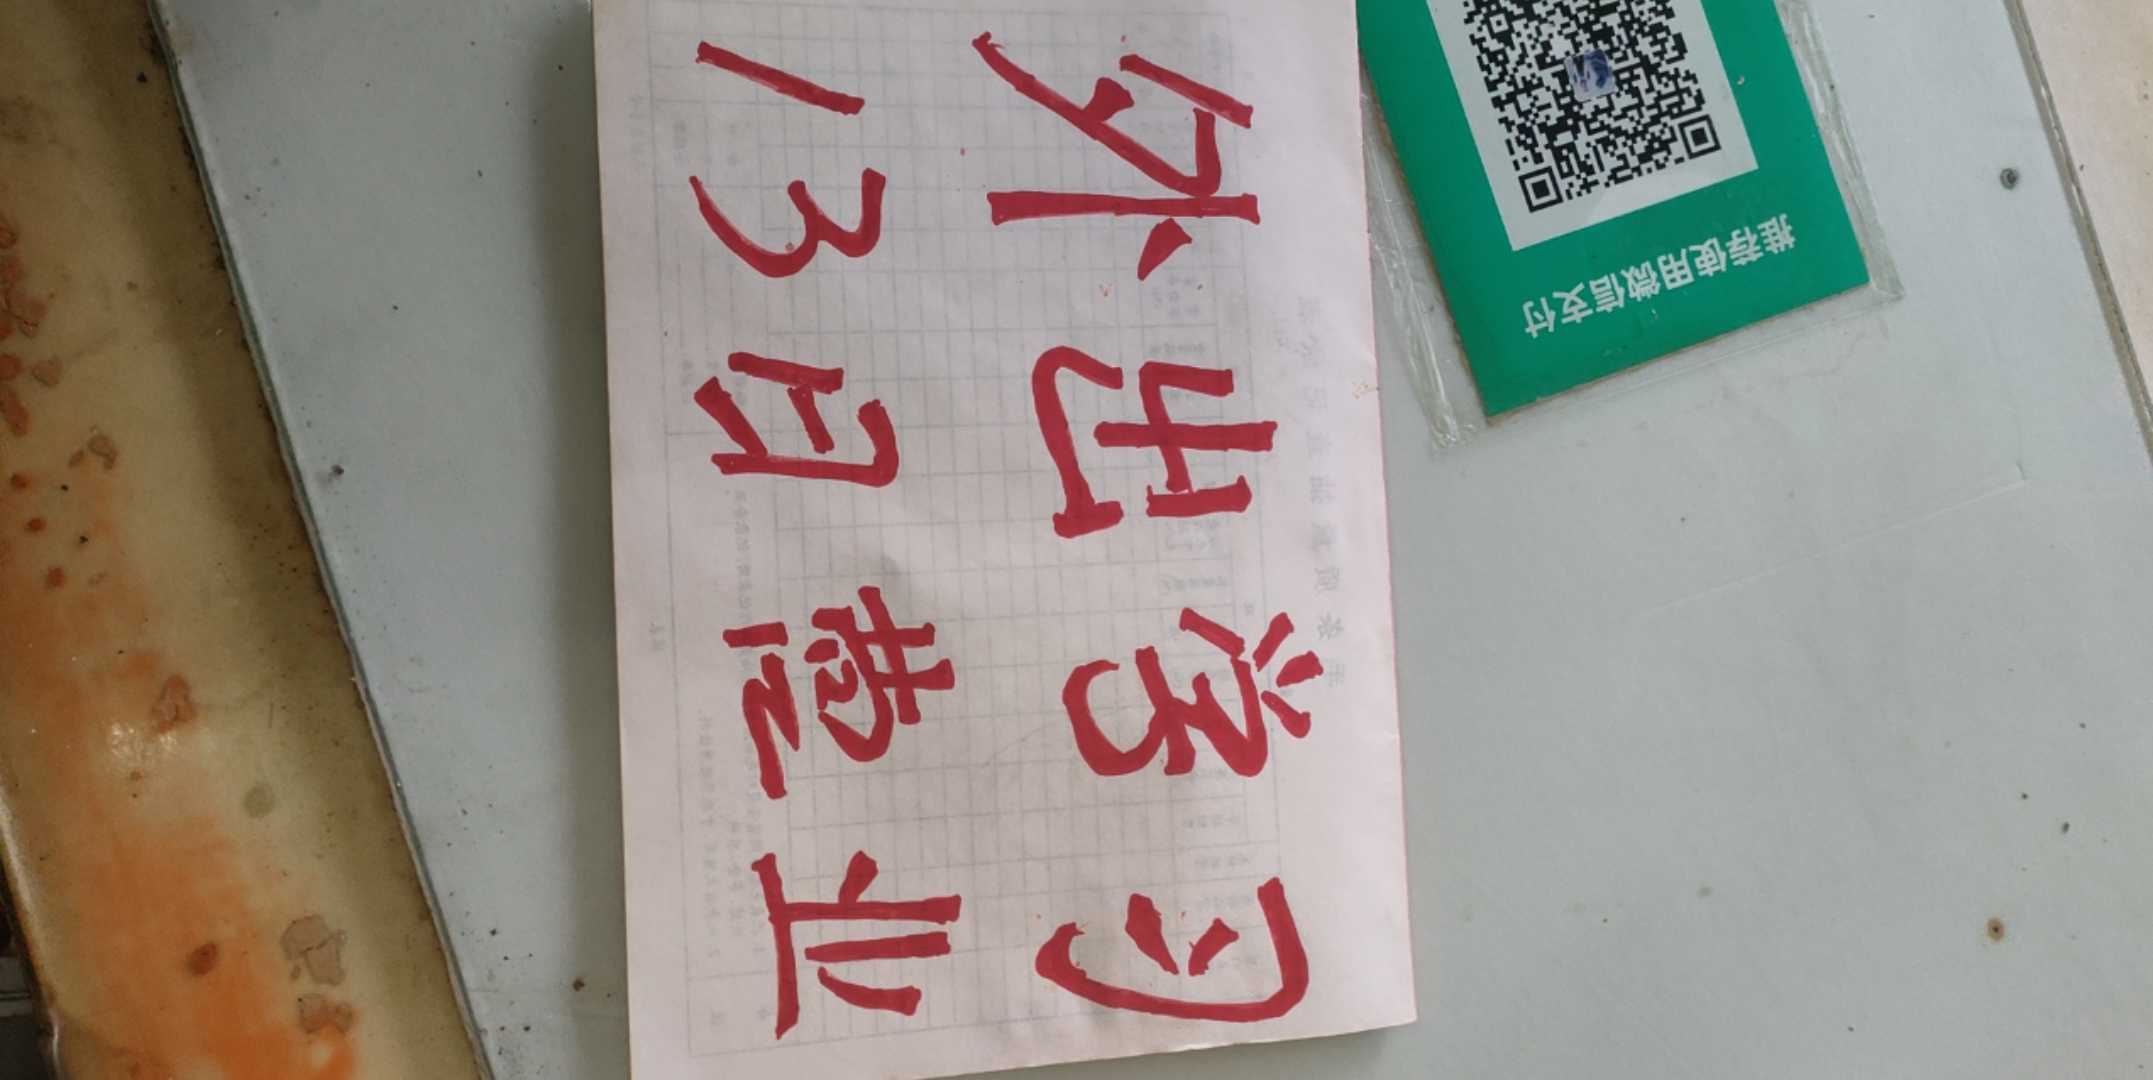 外出学习
13日营业
推荐使用微信支付